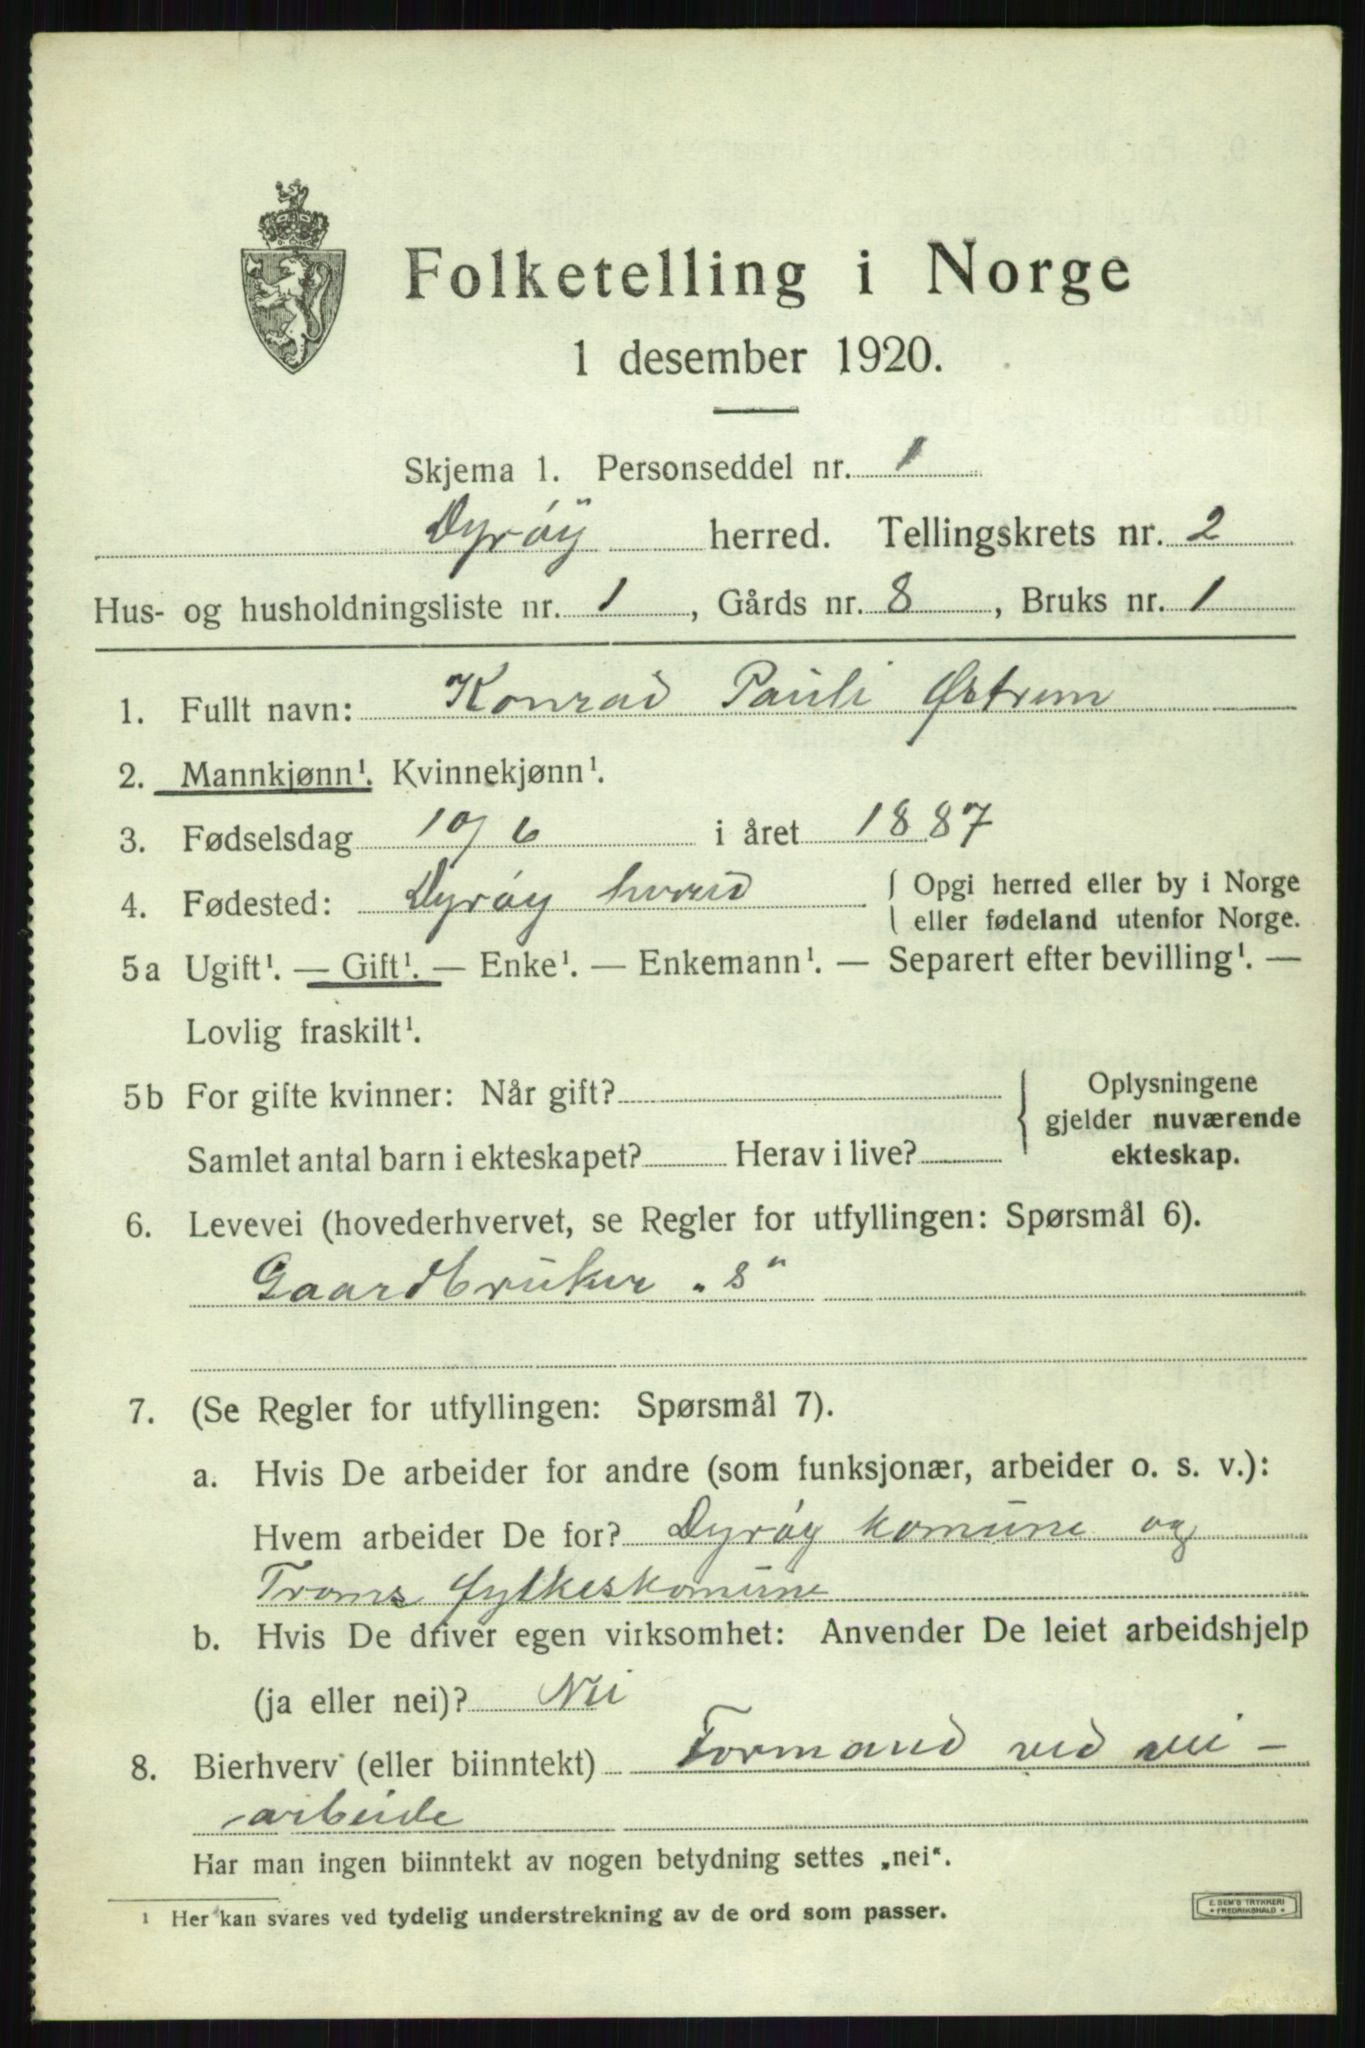 Folketelling i Norge
1 desember 1920.
Skjema 1. Personseddel nr. 1
Dyrøy herred. Tellingskrets nr. 2
Hus- og husholdningsliste nr. 1, Gårds nr. 8, Bruks nr. 1
1. Fullt navn: Konrad Pauli Østrem
2. Mannkjønn¹. Kvinnekjønn¹.
3. Fødselsdag 10/6 i året 1887
4. Fødested: Dyrøy herred { Opgi herred eller by i Norge
eller fødeland utenfor Norge.
5a Ugift¹. — Gift¹. — Enke¹. — Enkemann¹. — Separert efter bevilling¹. —
Lovlig fraskilt¹.
5b For gifte kvinner: Når gift? { Oplysningene
gjelder nuværende
Samlet antal barn i ekteskapet? Herav i live? ekteskap.
6. Levevei (hovederhvervet, se Regler for utfyllingen: Spørsmål 6).
Gaardbruker „S“
7. (Se Regler for utfyllingen: Spørsmål 7).
a. Hvis De arbeider for andre (som funksjonær, arbeider o. s. v.):
Hvem arbeider De for? Dyrøy komune og
Troms fylkeskomune
b. Hvis De driver egen virksomhet: Anvender De leiet arbeidshjelp
(ja eller nei)? Nei
8. Bierhverv (eller biinntekt) Formand ved vei-
arbeide
Har man ingen biinntekt av nogen betydning settes „nei“.
¹ Her kan svares ved tydelig understrekning av de ord som passer.
E. SEM'S TRYKKERI
• FREDRIKSHALD •